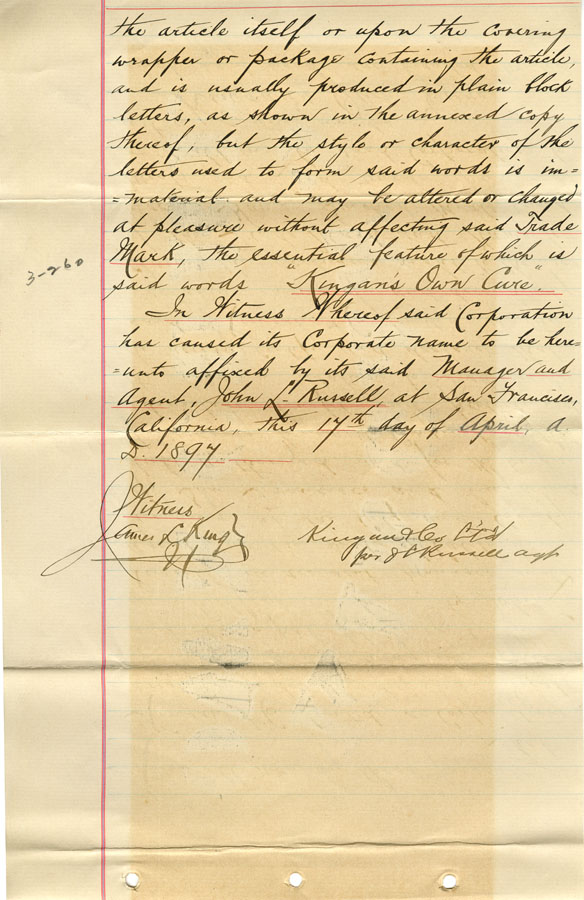 the article itself or upon the covering
wrapper or package containing the article,
and is usually produced in plain block
letters, as shown in the annexed copy
thereof, but the style or character of the
letters used to form said words is im=
=material and may be altered or changed
at pleasure without affecting said Trade
Mark, the essential feature of which is
said words "Kingan's Own Cure".
3-260
In Witness Whereof said Corporation
has caused its Corporate name to be here=
=unto affixed by its said Manager and
Agent, John L. Russell, at San Francisco,
California, this 17th day of April, A.
D. 1897
Witness
James L King
Kingan & Co Lt'd
per J L Russell agt